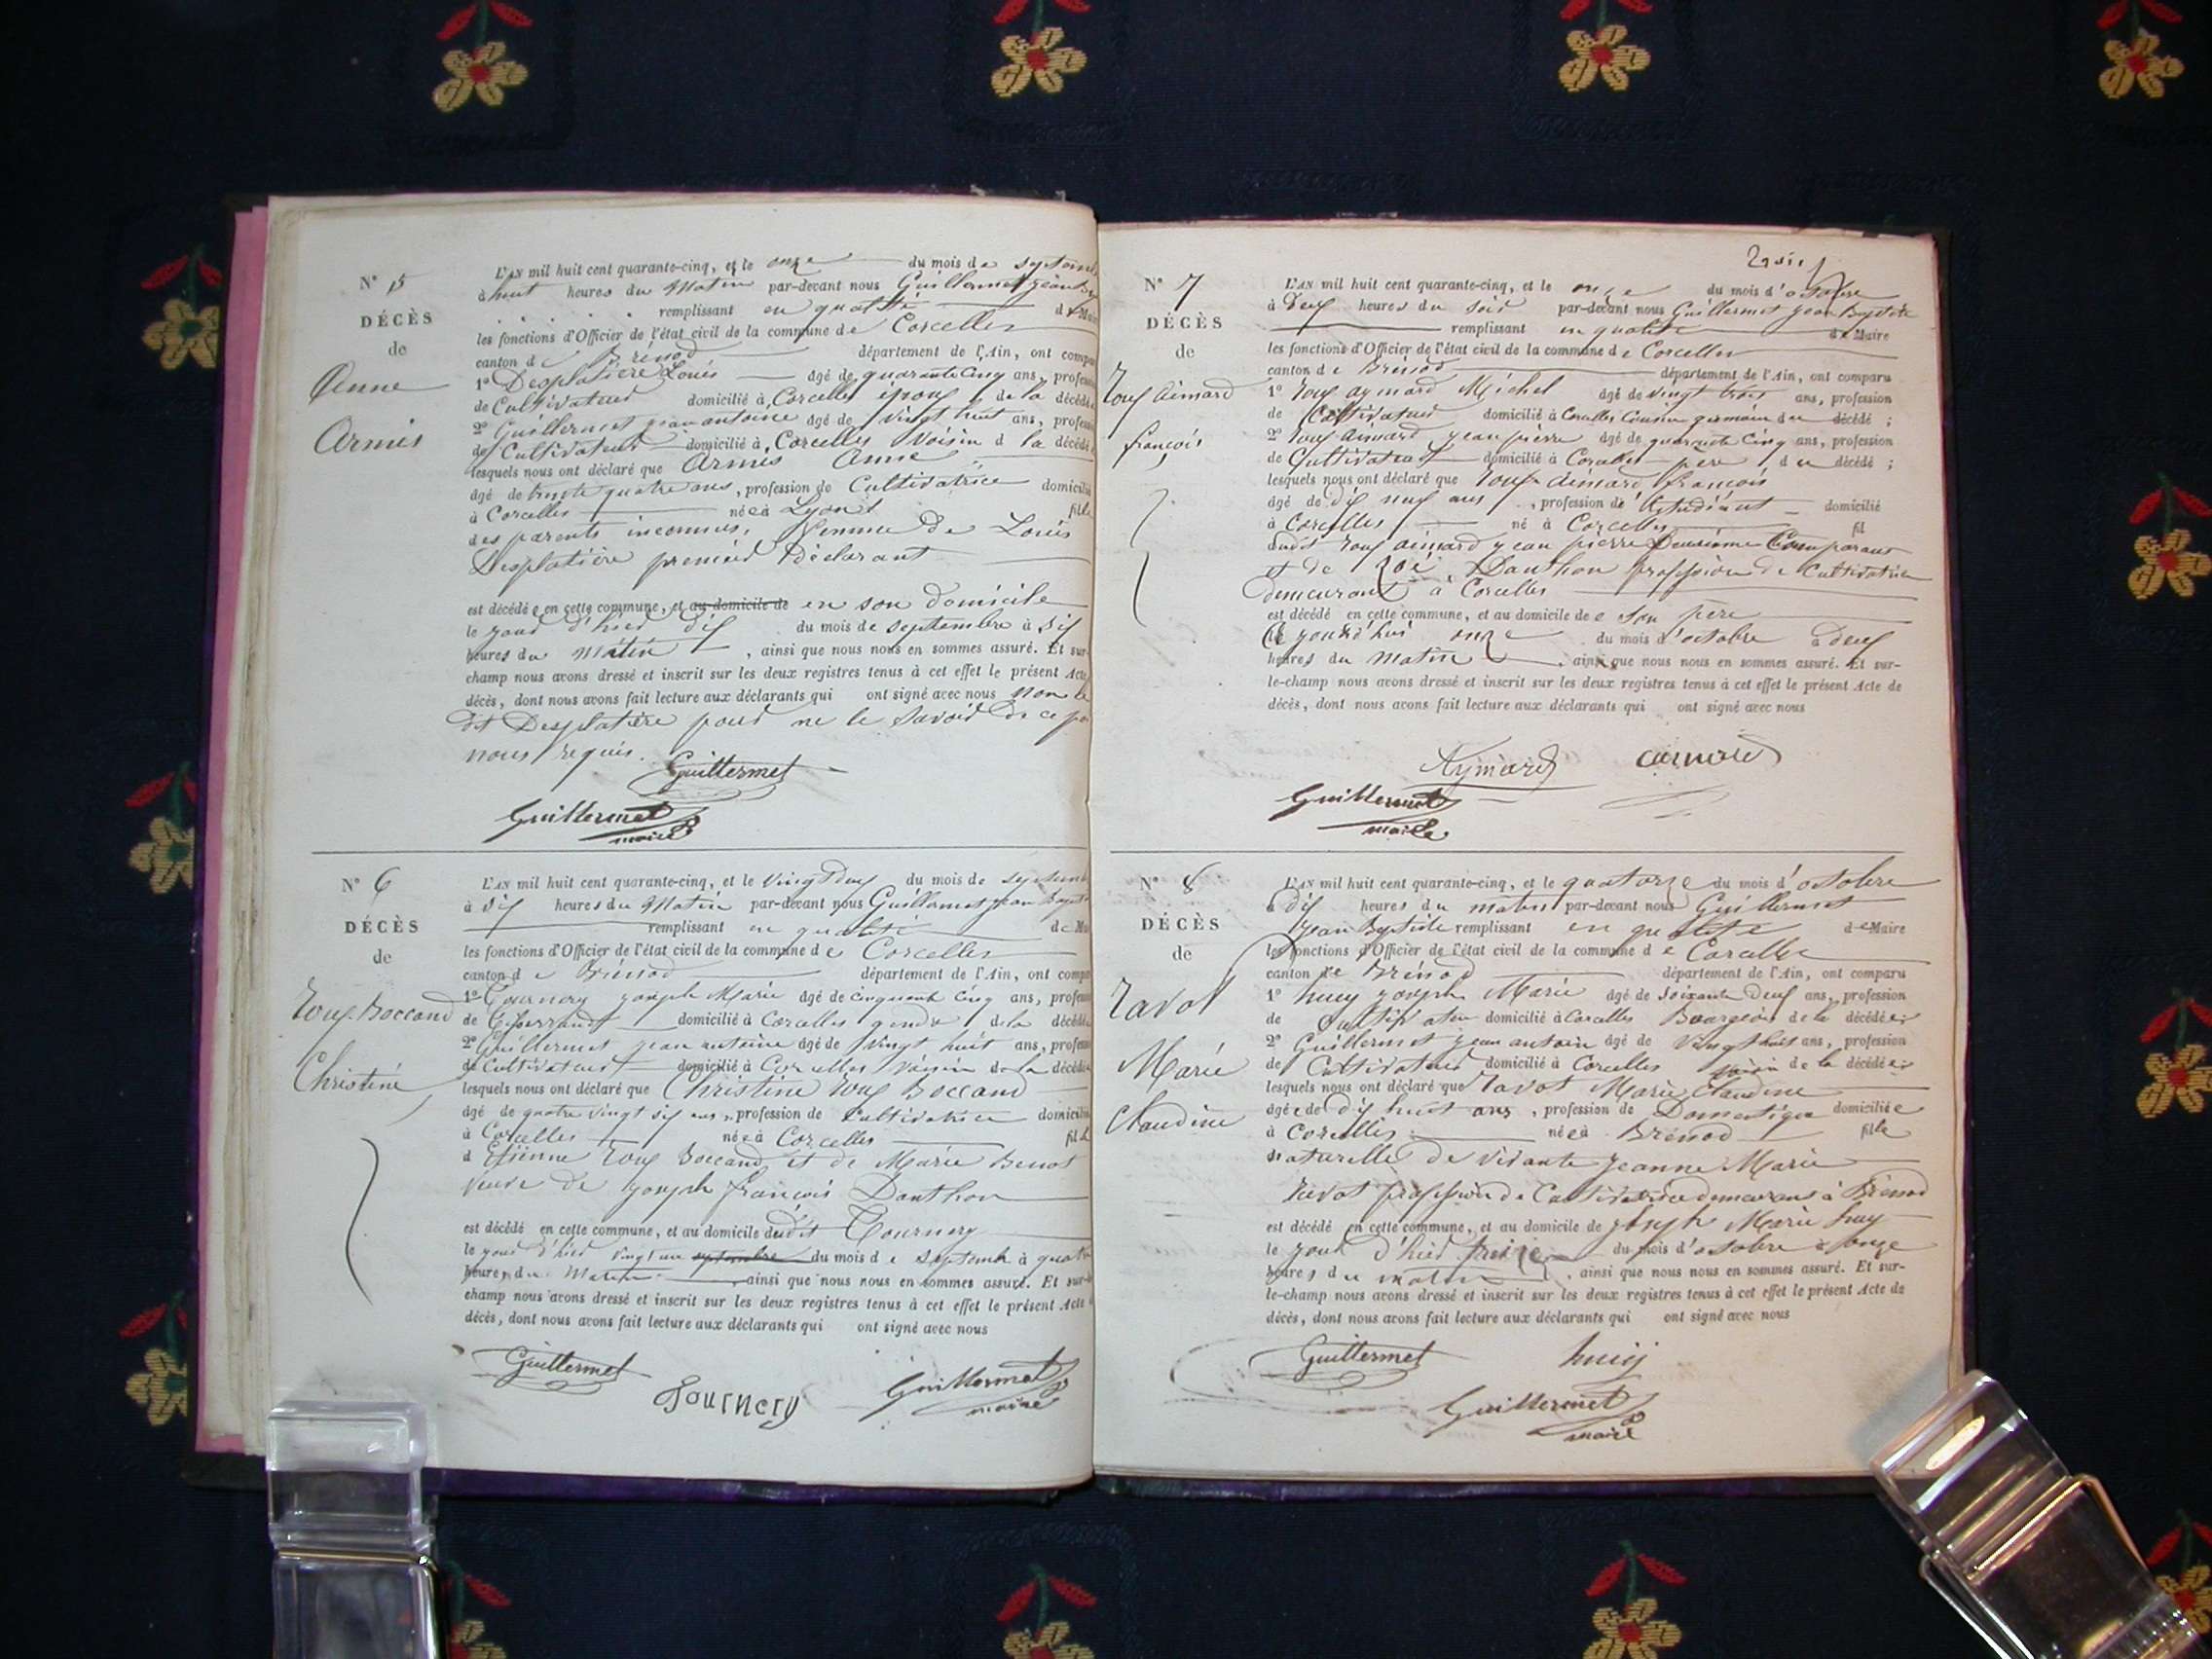 N° 5
DÉCÈS
de
Anne
Armis
L'AN mil huit cent quarante-cinq, et le onze du mois de septemb
à huit heures du Matin par-devant nous Guillermet jean B
remplissant en qualité de Mai
les fonctions d'Officier de l'état civil de la commune de Corcelles
canton de Brénod département de l'Ain, ont compa
1° Desplatière Louis âgé de quarante cinq ans, profess
de Cultivateur domicilié à Corcelles époux de la décédé
2° Guillermet jean antoine âgé de vingt huit ans, profess
de Cultivateur domicilié à Corcelles Voisin d la décédé
lesquels nous ont déclaré que Armis Anne
âgé de trente quatre ans, profession de Cultivatrice domicilié
à Corcelles née à Lyon fille
des parents inconnus, Femme de Louis
Desplatière premier Déclarant
est décédée en cette commune, et au domicile de en son domicile
le jour d'hier dix du mois de septembre à dix
heures du matin, ainsi que nous nous en sommes assuré. Et sur-
champ nous avons dressé et inscrit sur les deux registres tenus à cet effet le présent Acte
décès, dont nous avons fait lecture aux déclarants qui ont signé avec nous non le
dit Desplatière pour ne le savoir de ce pa
nous requis.
Guillermet
Guillermet
maire
N° 6
DÉCÈS
de
Roux-Boccand
Christine
L'AN mil huit cent quarante-cinq, et le vingt deux du mois de septemb
à dix heures du Matin par-devant nous Guillermet jean Bapti
remplissant en qualité de Ma
les fonctions d'Officier de l'état civil de la commune de Corcelles
canton de Brénod département de l'Ain, ont compa
1° Tournery joseph Marie âgé de cinquante cinq ans, profess
de domicilié à Corcelles gendre de la décédé
2° Guillermet jean antoine âgé de vingt huit ans, profess
de Cultivateur domicilié à Corcelles voisin de la décédé
lesquels nous ont déclaré que Christine Roux Boccand
âgé de quatre vingt six ans, profession de Cultivatrice domicilié
à Corcelles née à Corcelles fille
d Etienne Roux Boccand et de Marie Benot
veuve de joseph françois Danthon
est décédé en cette commune, et au domicile dudit Tournery
le jour d'hier vingt un septembre du mois de septemb à quatre
heures du Matin, ainsi que nous nous en sommes assuré. Et sur-le
champ nous avons dressé et inscrit sur les deux registres tenus à cet effet le présent Acte
décès, dont nous avons fait lecture aux déclarants qui ont signé avec nous
Guillermet
Tournery
Guillermet
maire
N° 7
DÉCÈS
de
Roux Aimard
françois
L'AN mil huit cent quarante-cinq, et le onze du mois d'octobre
à Deux heures du soir par-devant nous Guillermet Jean Baptiste
remplissant en qualité de Maire
les fonctions d'Officier de l'état civil de la commune de Corcelles
canton de Brénod département de l'Ain, ont comparu
1° Roux aymard Michel âgé de vingt trois ans, profession
de Cultivateur domicilié à Corcelles Cousin germain du décédé ;
2° Roux Aimard jean pierre âgé de quarante cinq ans, profession
de Cultivateur domicilié à Corcelles père du décédé ;
lesquels nous ont déclaré que Roux Aimard François
âgé de dix neuf ans, profession d'étudiant domicilié
à Corcelles né à Corcelles fil
dudit Roux aimard jean pierre Deuxième Comparant
et de Zoé Danthon profession de Cultivatrice
demeurant à Corcelles
est décédé en cette commune, et au domicile de son père
le jourd'hui onze du mois d'octobre à deux
heures du matin, ainsi que nous nous en sommes assuré. Et sur-
le-champ nous avons dressé et inscrit sur les deux registres tenus à cet effet le présent Acte de
décès, dont nous avons fait lecture aux déclarants qui ont signé avec nous
Aymard
Guillermet
maire
N° 8
DÉCÈS
de
Ravot
Marie
Claudine
L'AN mil huit cent quarante-cinq, et le quatorze du mois d'octobre
à dix heures du matin par-devant nous Guillermet
Jean Baptiste remplissant en qualité de Maire
les fonctions d'Officier de l'état civil de la commune de Corcelles
canton de Brénod département de l'Ain, ont comparu
1° huey joseph Marie âgé de soixante Deux ans, profession
de Cultivateur domicilié à Corcelles Bourgeois de la décédée
2° Guillermet jean antoine âgé de vingt huit ans, profession
de Cultivateur domicilié à Corcelles voisin de la décédée
lesquels nous ont déclaré que Ravot Marie Claudine
âgée de dix huit ans, profession de Domestique domiciliée
à Corcelles née à Brénod fille
naturelle de vivante Jeanne Marie
Ravot profession de Cultivatrice demeurant à Brénod
est décédé en cette commune, et au domicile de joseph Marie huey
le jour d'hier treize du mois d'octobre à onze
heures du matin, ainsi que nous nous en sommes assuré. Et sur-
le-champ nous avons dressé et inscrit sur les deux registres tenus à cet effet le présent Acte de
décès, dont nous avons fait lecture aux déclarants qui ont signé avec nous
Guillermet
Guillermet
maire